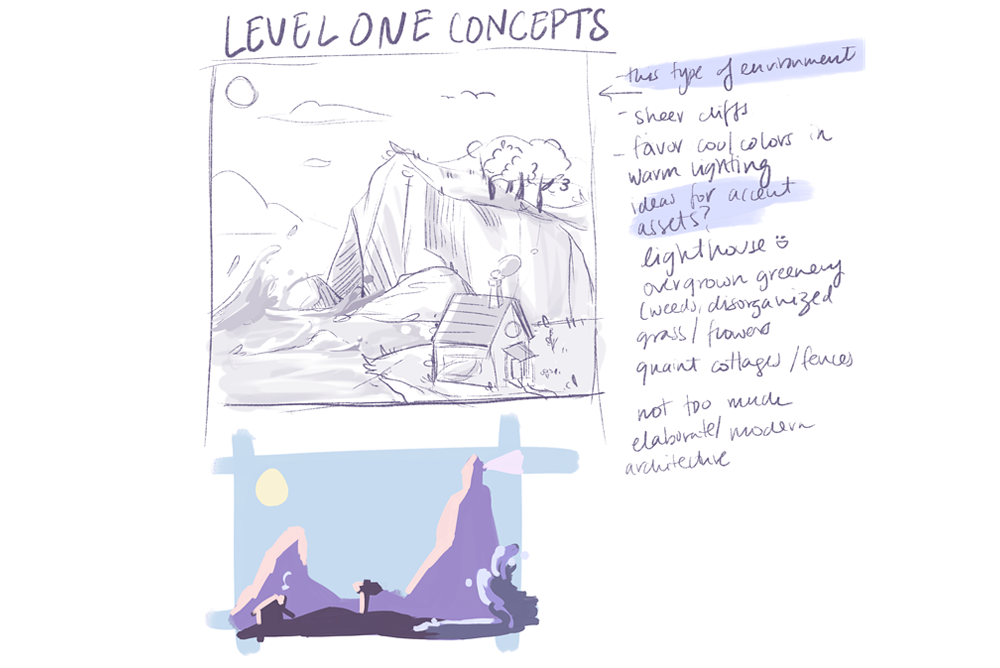 LEVEL ONE CONCEPTS
- this type of environment
- sheer cliffs
- favor cool colors in
warm lighting
ideas for accent
assets?
lighthouse
overgrown greenery
(weeds, disorganized
grass/flowers
quaint cottages/fences
not too much
elaborate/modern
architecture